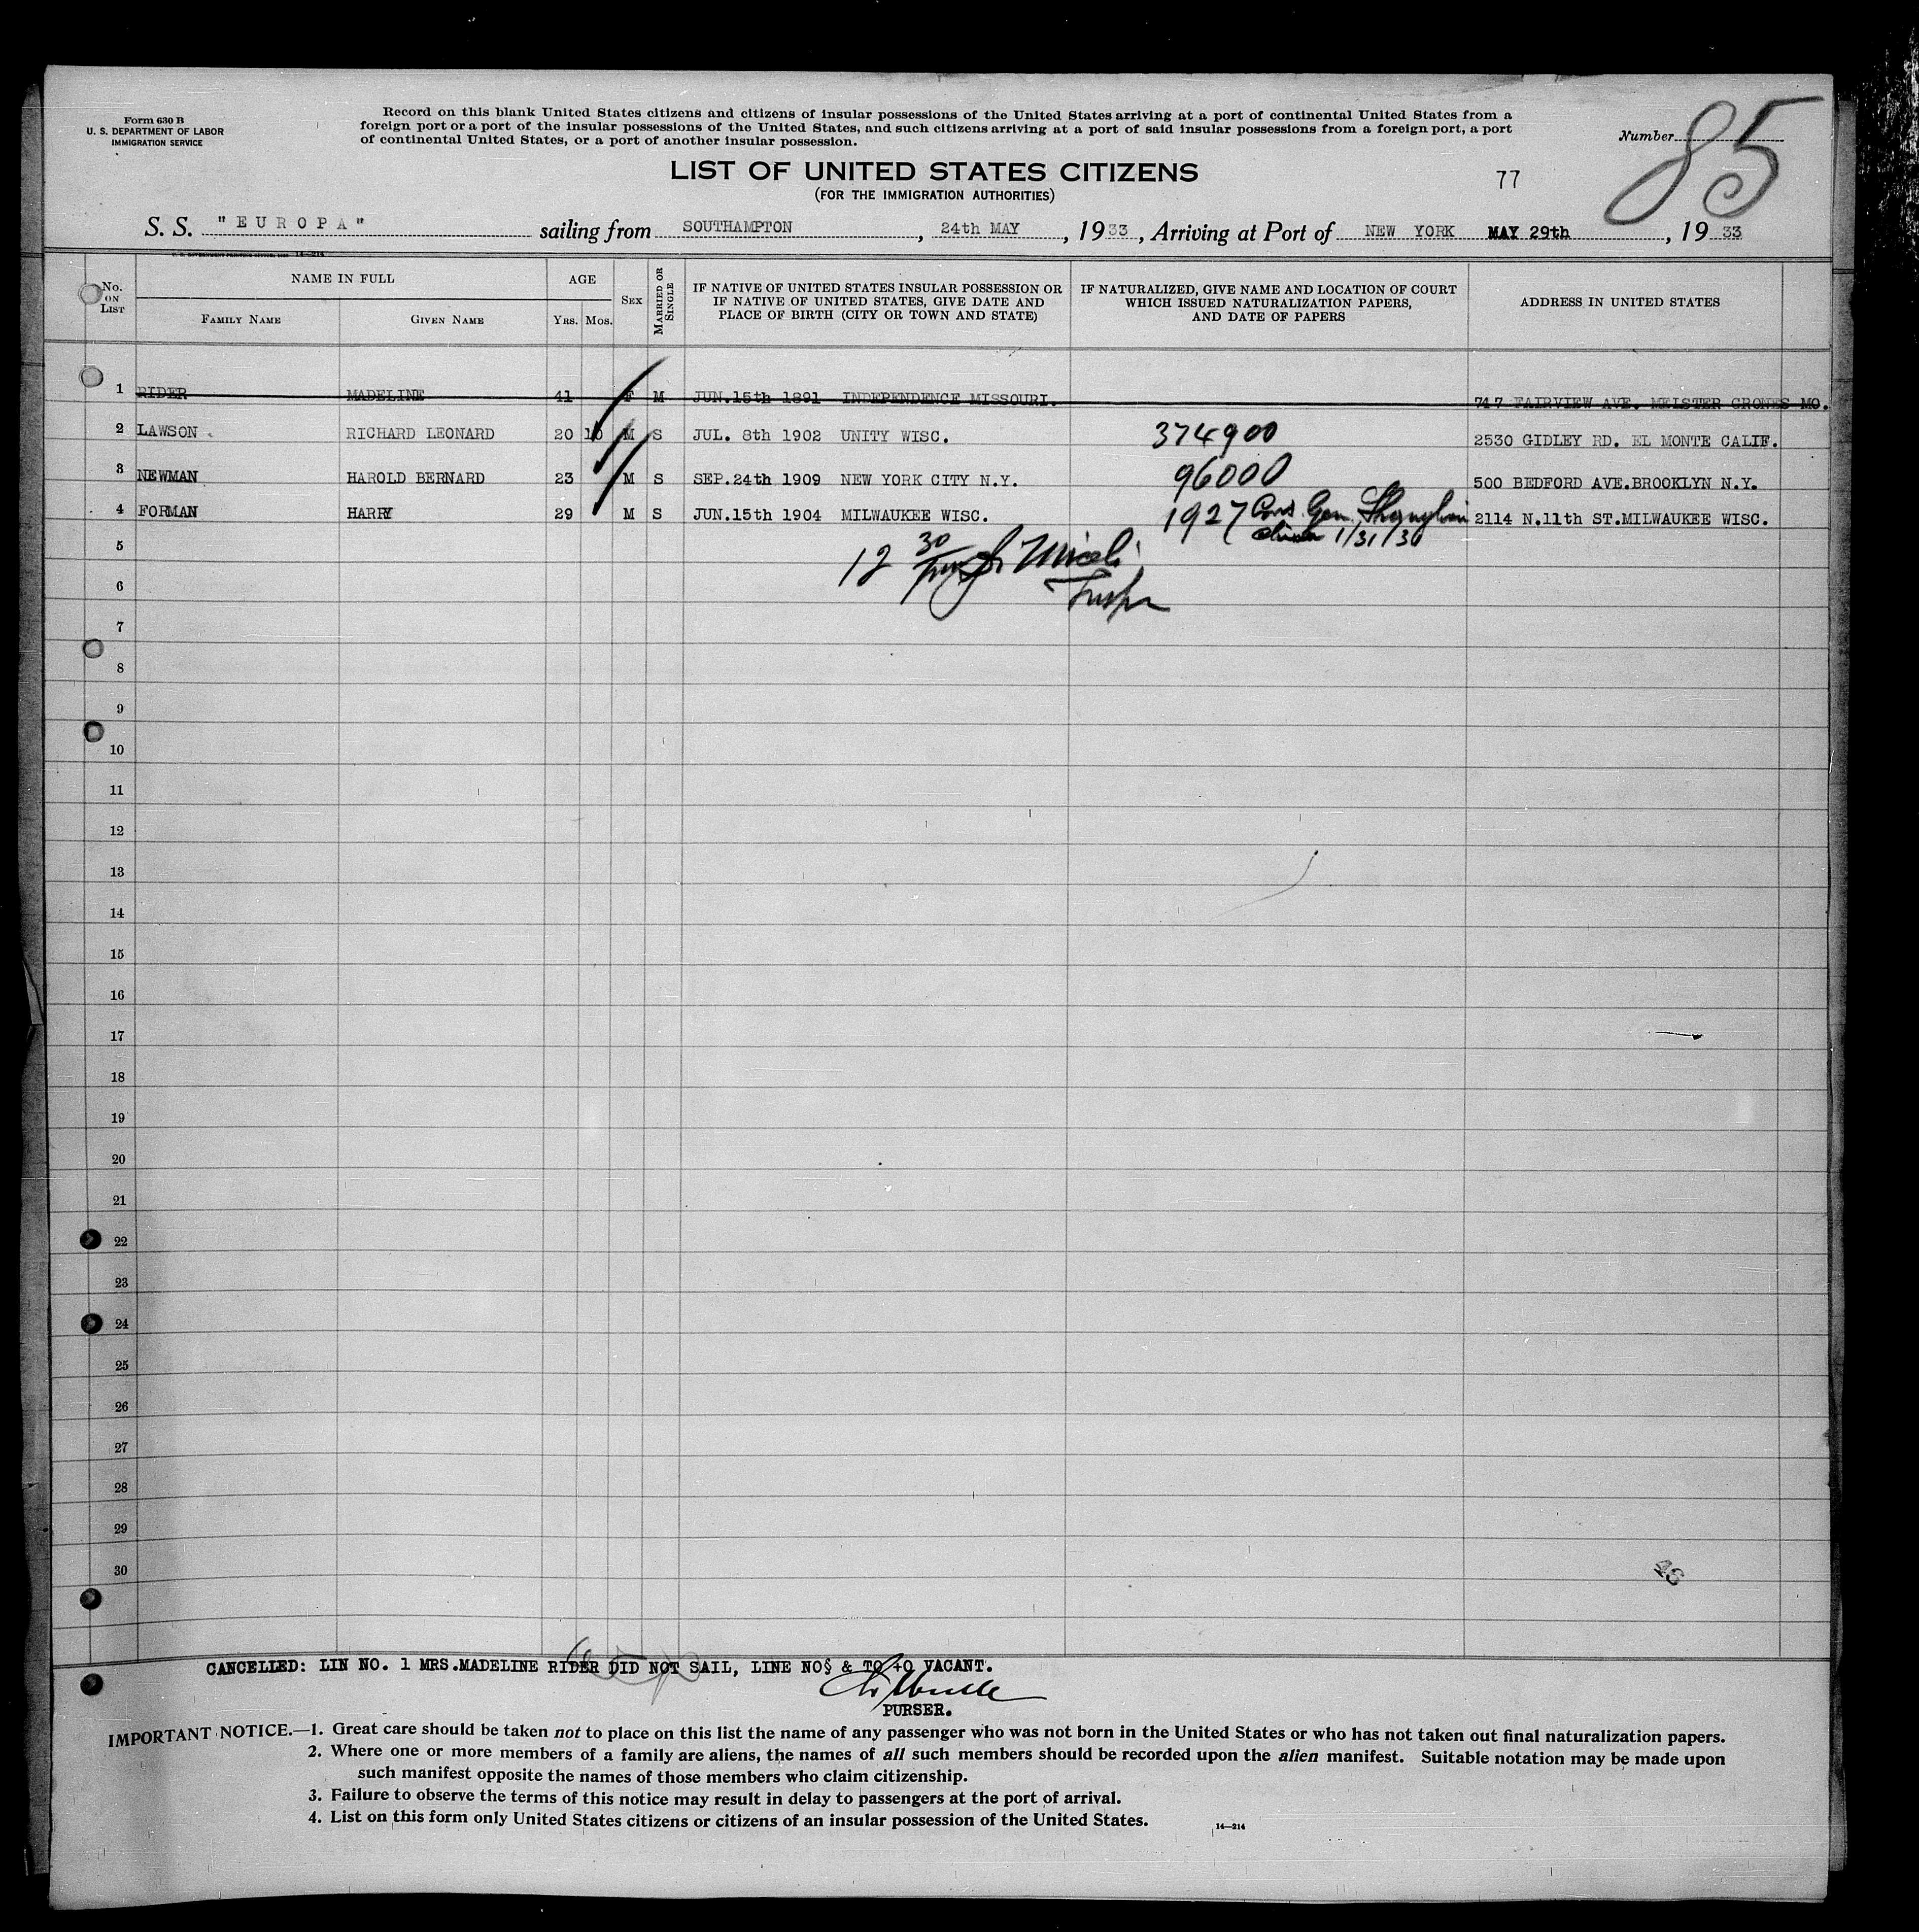 Form 630 B
U. S. DEPARTMENT OF LABOR
IMMIGRATION SERVICE
Record on this blank United States citizens and citizens of insular possessions of the United States arriving at a port of continental United States from a
foreign port or a port of the insular possessions of the United States, and such citizens arriving at a port of said insular possessions from a foreign port, a port
of continental United States, or a port of another insular possession.
Number 85
LIST OF UNITED STATES CITIZENS
77
(FOR THE IMMIGRATION AUTHORITIES)
S. S. "EUROPA" sailing from SOUTHAMPTON, 24th MAY, 1933, Arriving at Port of NEW YORK MAY 29th, 1933
No. ON LIST
NAME IN FULL
FAMILY NAME
GIVEN NAME
AGE
Yrs. Mos.
SEX
MARRIED OR SINGLE
IF NATIVE OF UNITED STATES INSULAR POSSESSION OR
IF NATIVE OF UNITED STATES, GIVE DATE AND
PLACE OF BIRTH (CITY OR TOWN AND STATE)
IF NATURALIZED, GIVE NAME AND LOCATION OF COURT
WHICH ISSUED NATURALIZATION PAPERS,
AND DATE OF PAPERS
ADDRESS IN UNITED STATES
1 RIDER MADELINE 41 F M JUN.15th 1891 INDEPENDENCE MISSOURI. 747 FAIRVIEW AVE. MEISTER GRONES MO.
2 LAWSON RICHARD LEONARD 20 10 M S JUL. 8th 1902 UNITY WISC. 374900 2530 GIDLEY RD. EL MONTE CALIF.
3 NEWMAN HAROLD BERNARD 23 M S SEP.24th 1909 NEW YORK CITY N.Y. 96000 500 BEDFORD AVE.BROOKLYN N.Y.
4 FORMAN HARRY 29 M S JUN.15th 1904 MILWAUKEE WISC. 1927 Cons. Gen. Shanghai 2114 N.11th ST.MILWAUKEE WISC.
China 1/31/30
5
12 30
6
7
8
9
10
11
12
13
14
15
16
17
18
19
20
21
22
23
24
25
26
27
28
29
30
CANCELLED: LIN NO. 1 MRS.MADELINE RIDER DID NOT SAIL, LINE NOS & TO 40 VACANT.
PURSER.
IMPORTANT NOTICE.—1. Great care should be taken not to place on this list the name of any passenger who was not born in the United States or who has not taken out final naturalization papers.
2. Where one or more members of a family are aliens, the names of all such members should be recorded upon the alien manifest. Suitable notation may be made upon
such manifest opposite the names of those members who claim citizenship.
3. Failure to observe the terms of this notice may result in delay to passengers at the port of arrival.
4. List on this form only United States citizens or citizens of an insular possession of the United States.
14—214